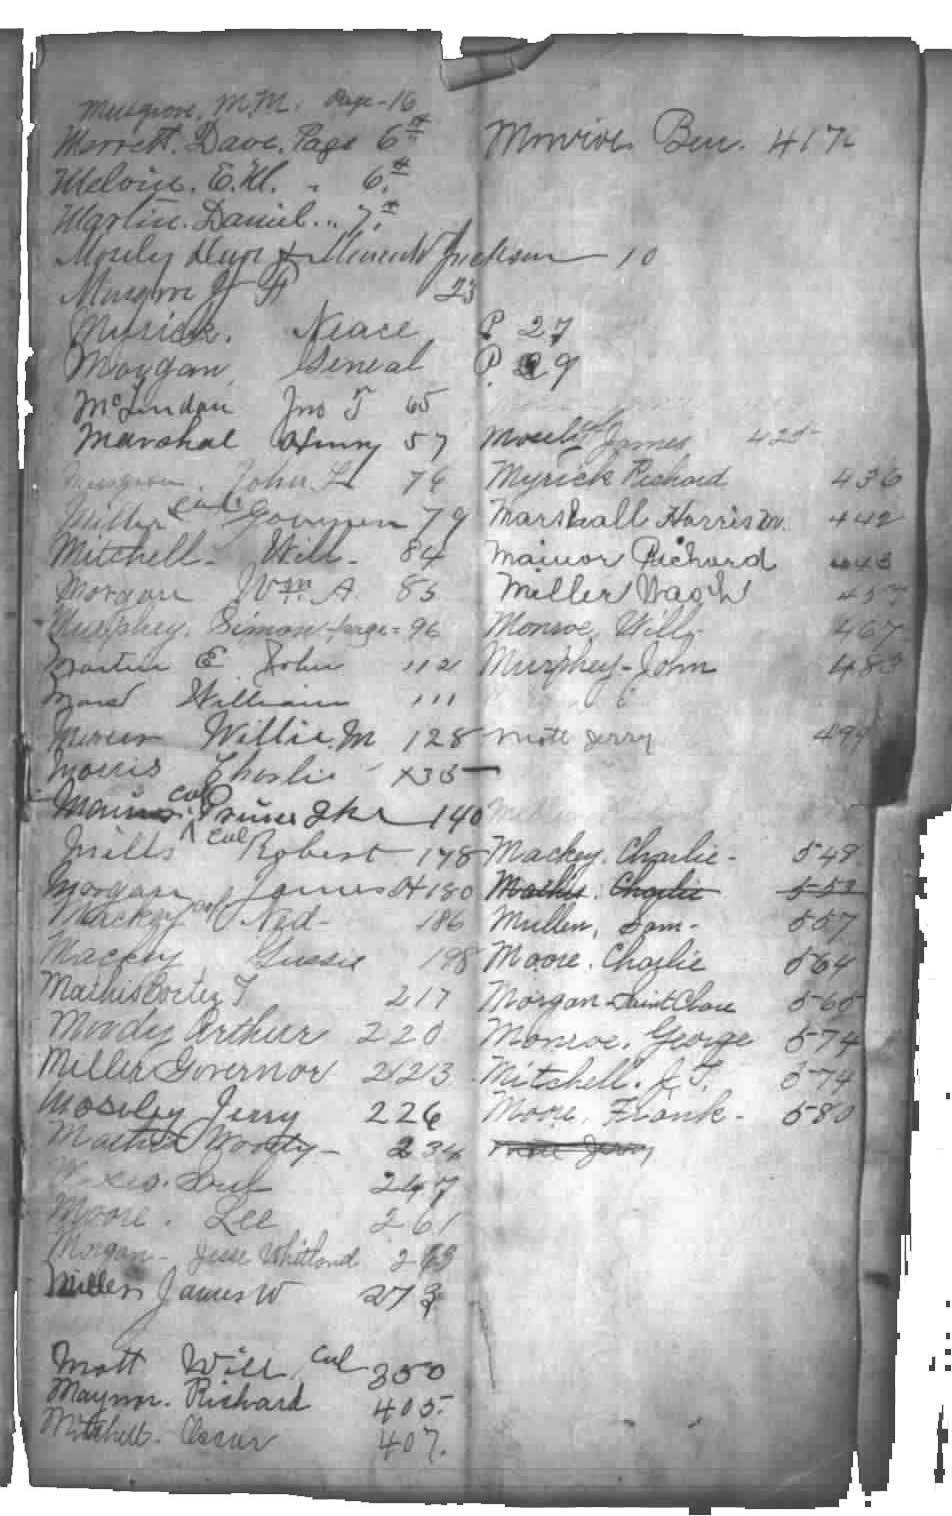 Musgrove, M.M. Page-16
Merrett. Dave. Page 6
Meloin. E.M. . 6
Martin. Daniel... 7
Mosely Jackson 10
Musgrove 23
Myrick. Neace P. 27
Morgan, General P. 29
McLendon Jno T 65
Marshal Henry 57
Musgrove. John L 76
Miller Col Gouvnen 79
Mitchell- Will- 84
Morgan Wm. A. 85
Murphey. Simon-page=96
Martin E John 112
William 111
Mercer Willie. M 128
Morris Charlie X35
Col Prince 140
Mills Col Robert 178
Morgan James H 180
Mackey Col Ned- 186
Mackey Gussie 198
Mathis Porter T 217
Moody Arthur 220
Miller Governor 223
Moseley Jerry 226
Mathis Woody- 234
247
Moore. Lee 261
Morgan- Jesse Whitland 265
Miller James W 273
Mott Will, Col 350
Maynor. Richard 405.
Mitchell- Oscar 407.
Monroe Ben. 417½
Mosely Col James 425-
Myrick Richard 436
Marshall Harris M. 442
Mainor Richard 443
Miller Wash 457
Monroe, Will- 467
Murphey-John 483
Mott Jerry 499
Mackey. Charlie- 549
Mathis. Charlie 553
Mullen, Sam- 557
Moore. Charlie 564
Morgan-Saint Clare 565
Monroe. George 574
Mitchell. J.T. 574
Moore, Frank- 580
Mott Jerry